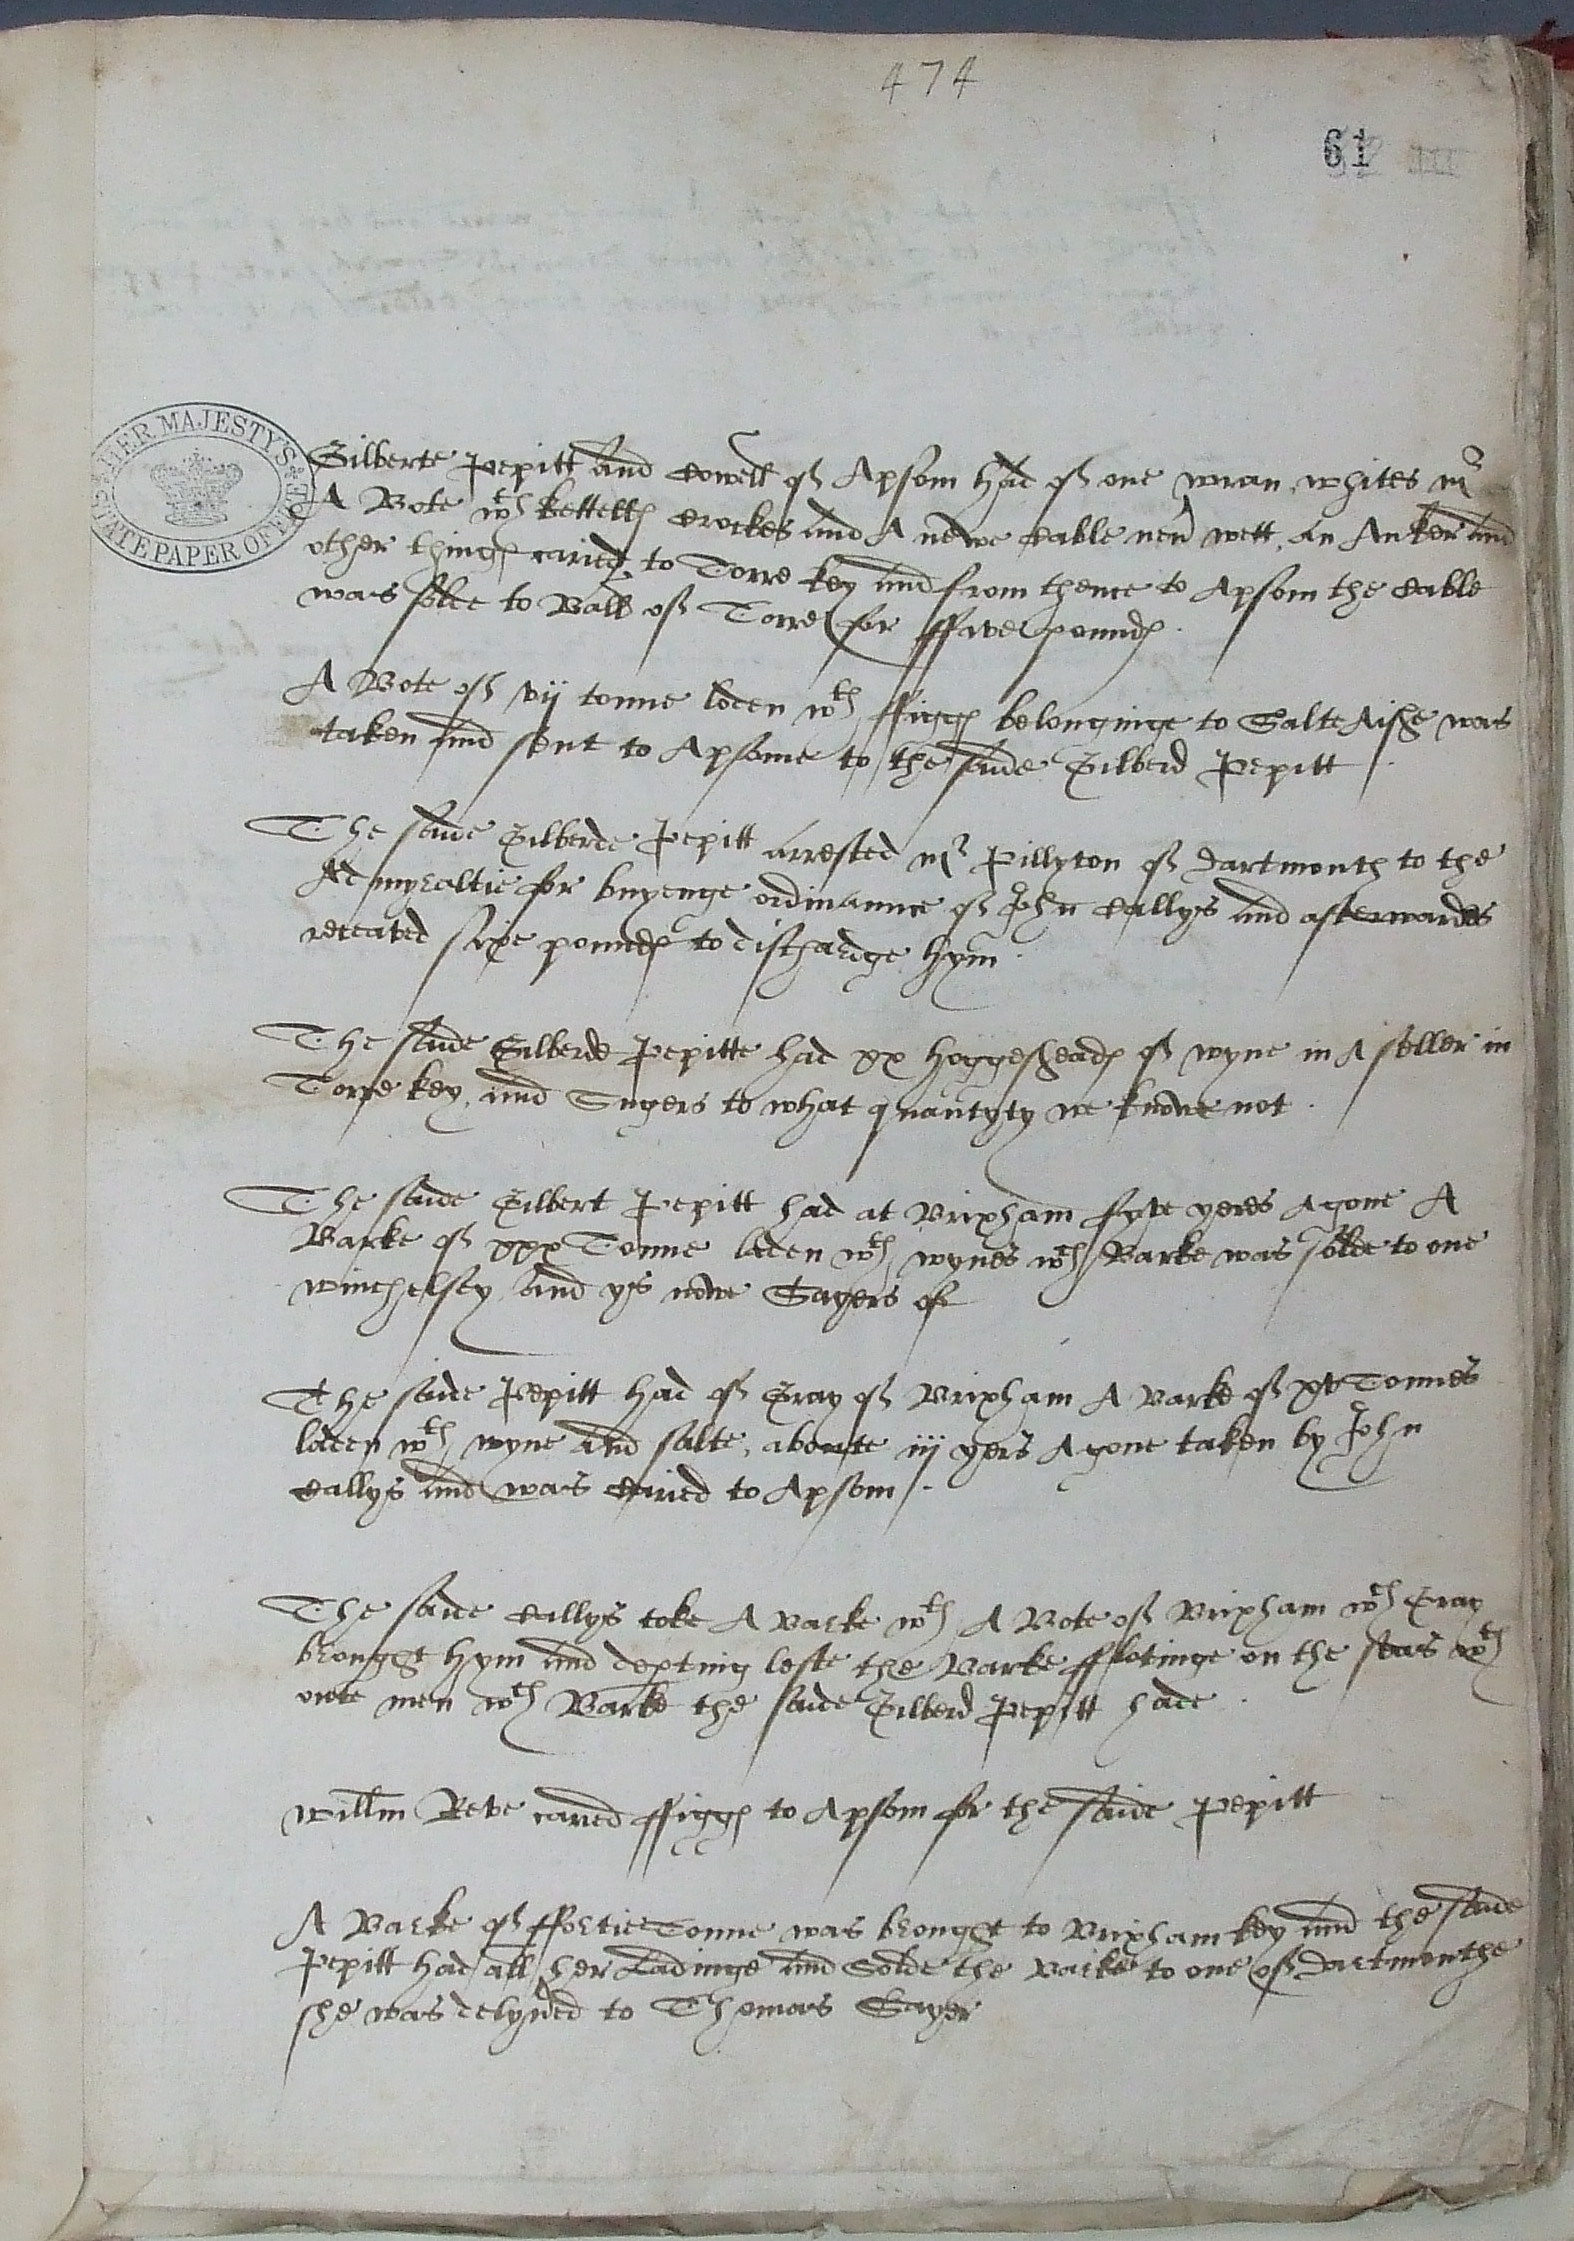 474
61
HER MAJESTY'S STATE PAPER OFFICE
Gilberte Pepitt and Cowell of Apsom had of one wran whites in
A Bote wth kettells crockes and A newe Cable nevr wett, an Anker and
other things caried to Torre key and from thence to Apsom the Cable
was solde to Ball of Torre for ffive pounds.
A Bote of vij tonne loden wth ffiggs belonginge to Salte Aishe was
taken and sent to Apsome to the saide Gilberd Pepitt.
The saide Gilberde Pepitt arrested mr Pillyton of Dartmouth to the
Admyraltie for buyenge ordinaunce of John Callys and afterwardes
receaved sixe pounds to dischardge hym.
The saide Gilberde Pepitte had xx hoggesheads of wyne in A seller in
Torre key, and Sugers to what quantyty we knowe not.
The saide Gilbert Pepitt had at Brixham fyve yeres Agone A
Barke of xxx Tonne laden wth wynes wch Barke was solde to one
winchelsey and ys nowe Sayers of
The saide Pepitt had of Gray of Brixham A Barke of xv Tonnes
laden wth wyne and salte, aboute iij yers Agone taken by John
Callys and was Caried to Apsom.
The saide Callys toke A Barke wth A Bote of Brixham wch Gray
brought hym and depting lefte the Barke fflotinge on the seas wth
owte men wch Barke the saide Gilberd Pepitt hade.
Willm Reve caried ffiggs to Apsom for the saide Pepitt
A Barke of ffortie Tonne was brought to Brixham key and the saide
Pepitt had all her Ladinge and Solde the Barke to one of Dartmouthe
she was delyvred to Thomas Sayer